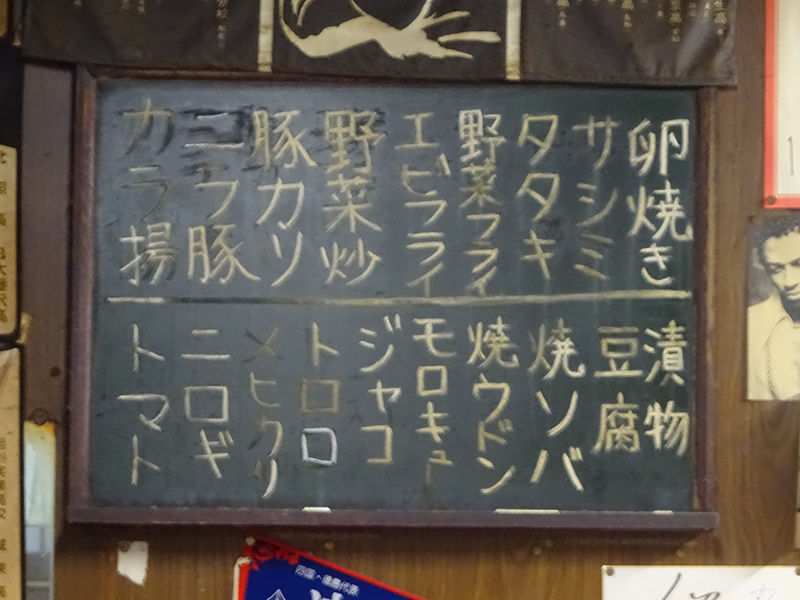 卵焼き
サシミ
タタキ
野菜フライ
エビフライ
野菜炒
豚カツ
ニラ豚
カラ揚
漬物
豆腐
焼ソバ
焼ウドン
モロキュー
ジャコ
トロロ
メヒカリ
ニロギ
トマト
四国・徳島代表